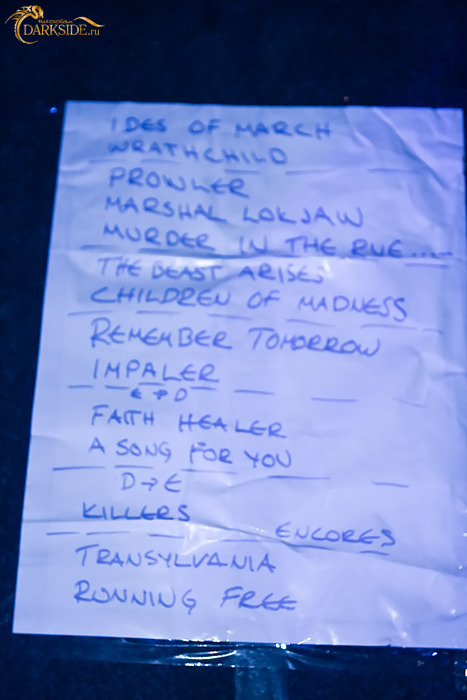 DARKSIDE.ru
IDES OF MARCH
WRATHCHILD
PROWLER
MARSHAL LOKJAW
MURDER IN THE RUE....
THE BEAST ARISES
CHILDREN OF MADNESS
REMEMBER TOMORROW
IMPALER
E → D
FAITH HEALER
A SONG FOR YOU
D → E
KILLERS
ENCORES
TRANSYLVANIA
RUNNING FREE